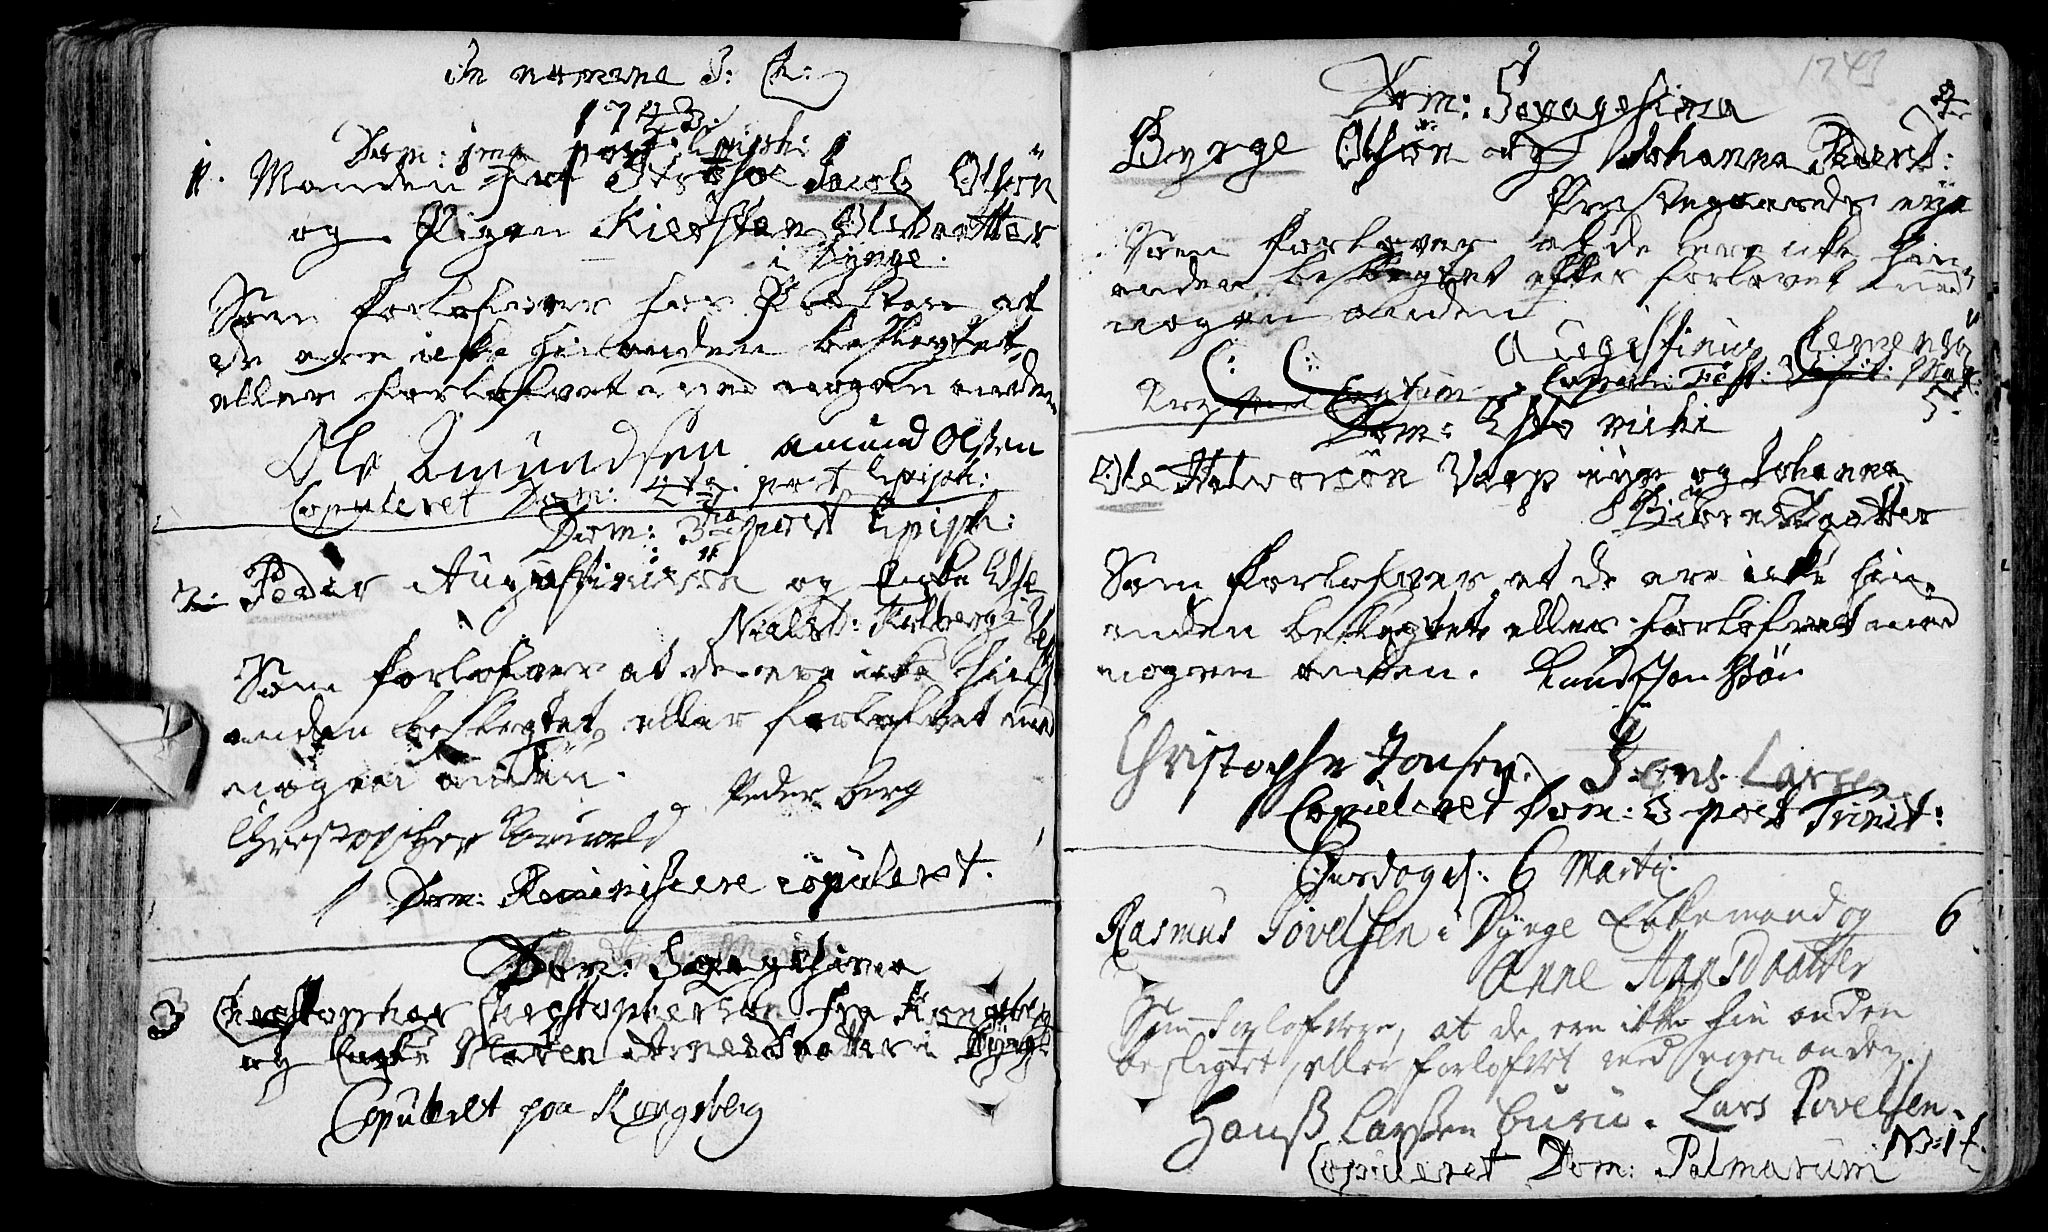 In nomine J: Ch:
1743.
Dom: 1ma post Epiph:
1. Manden fra Jacob Olsøn
og Pigen Kiersten Olsdaatter
i Bynge.
Som forlofver for Præsten at
de ere icke hinanden beslegtet
eller forlofvet med nogen anden
Ole Amundsen. Amund Olsen
Copuleret Dom: post Epiph:
Dom: 3tia post Epiph:
2. Peder Augustinusøn og Enke Else
Nielsd:
Som forlofver at de ere icke hin
anden beslegtet, eller forlofvet med
nogen anden.
Peder Berg
Christopher
Dom: Reminiscere copuleret.
Dom: Sexagesima
3 Christopher Christophersøn fra Kongsberg
og Enke Maren Arnesdaatter i Bynge
Copuleret paa Kongsberg
1743
Dom: Sexagesima
4
Byrge Olsøn og Johanna Peders:
Præstegaards eye
Som forlover at de ere icke hin
anden beslegtet eller forlovet med
nogen anden
Augustinus Clemensen
C: C:
Copul: Fest: Visit: Mar:
5.
Dom: Esto mihi
Ole Halvorsøn Varp eye og Johanna
Biørnsdaatter
Som forlofver at de ere icke hin
anden beslegtet eller forlofvet med
nogen anden. Knud
Christopher Jonsen. Jens Larsen
Copuleret Dom: 3 post Trinit:
Onsdagen: 6 Martij:
Rasmus Povelsen i Bynge Enkemand og 6
Anne Hansdaatter
Som forlofver, at de ere ikke hin anden
besligtet, eller forlofvet med nogen anden.
Hanß Larßen buru. Lars Povelsen.
Copuleret Dom: Palmarum